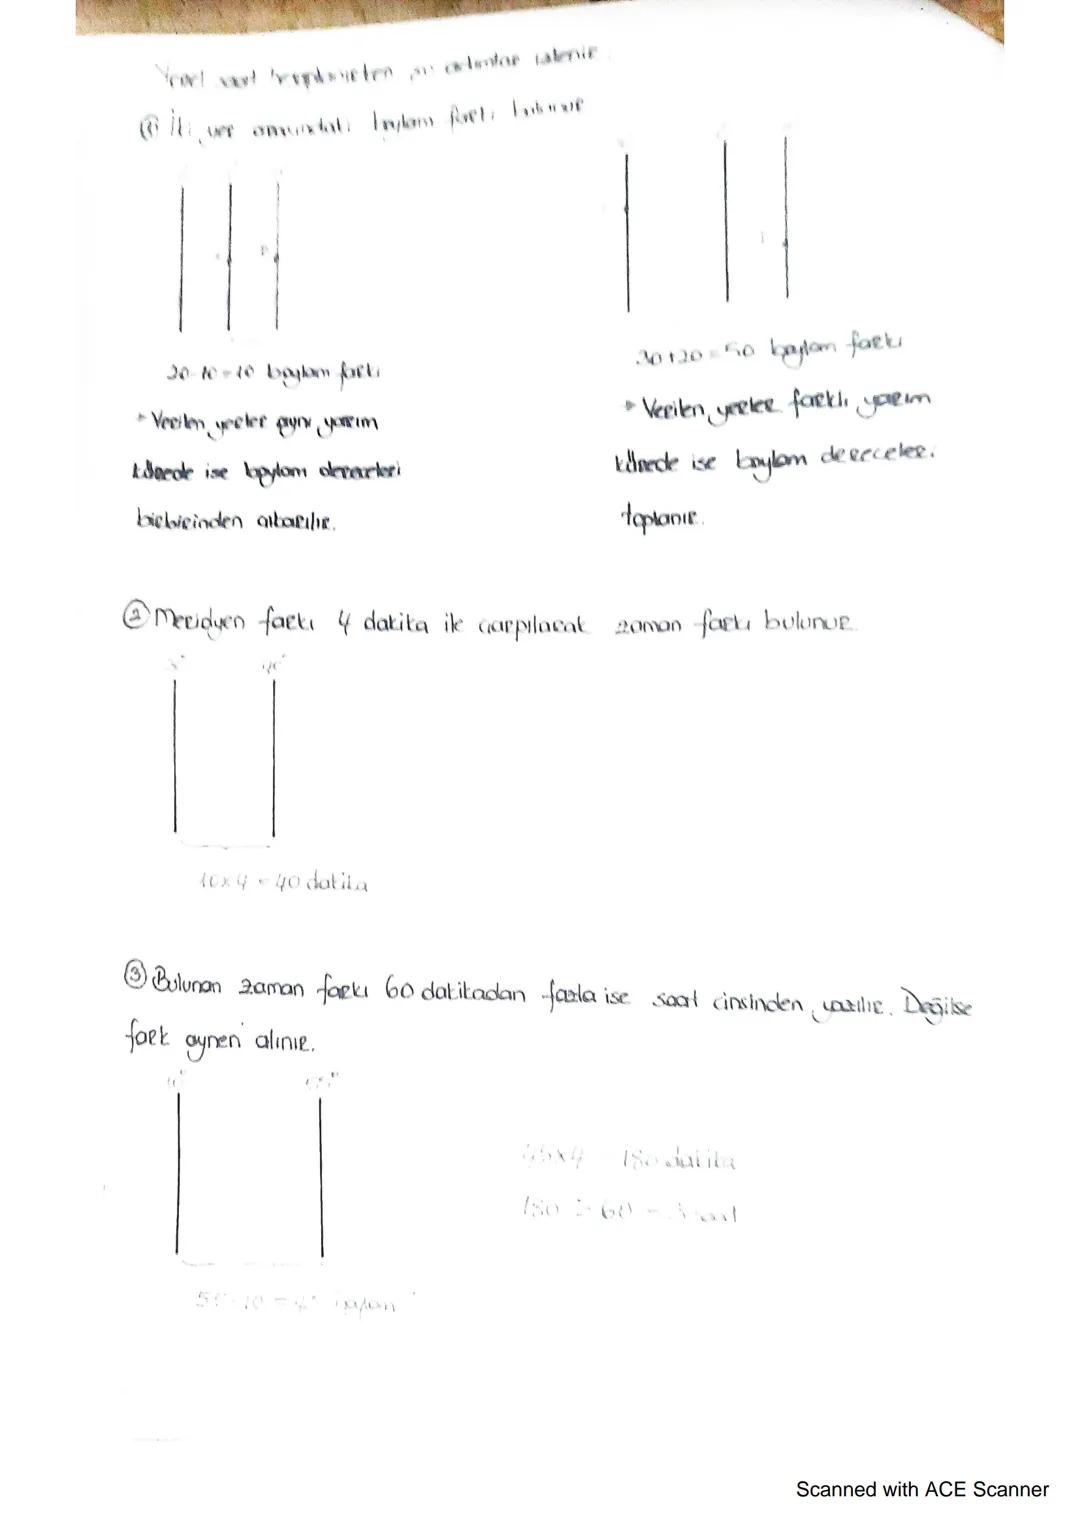 Yerel saat hesaplanırken şu adımlar izlenir.
① İki yer arasındaki boylam farkı bulunur
20-10=10 boylam farkı
30+20=50 boylam farkı
Verilen yerler aynı yarım
kürede ise boylam dereceleri
birbirinden çıkarılır.
Verilen yerler farklı yarım
kürede ise boylam dereceleri
toplanır.
② Meridyen farkı 4 dakika ile çarpılacak zaman farkı bulunur.
10x4=40 dakika
③ Bulunan zaman farkı 60 dakikadan fazla ise saat cinsinden yazılır. Değilse
fark aynen alınır.
10°
45x4 180 dakika
180 ÷ 60 = 3 saat
Scanned with ACE Scanner